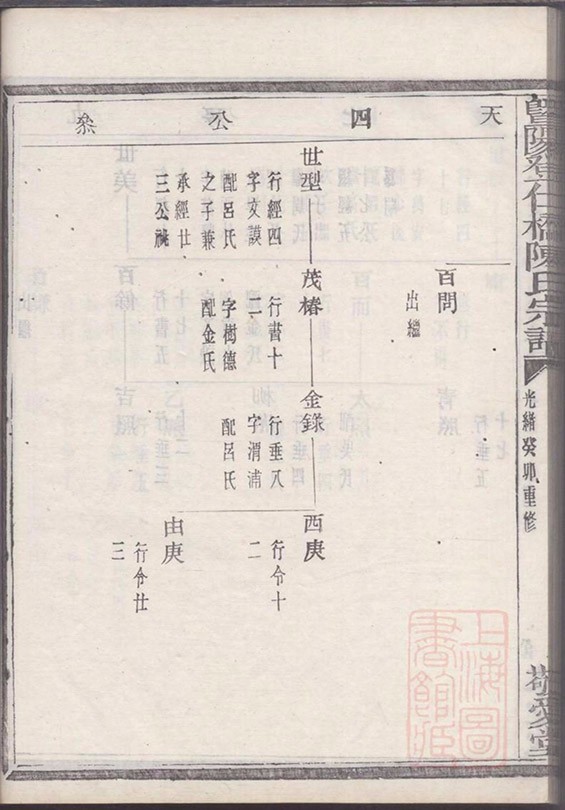 暨陽登仕橋陳氏宗譜
光緒癸卯重修
敬愛堂
天 四 公 叅
百問
出繼
世型
行經四
字文謨
配呂氏
之子兼
承經廿
三公祧
茂椿
行書十
一
字樹德
配金氏
金錄
行垂八
字渭浦
配呂氏
酉庚
行令十
二
由庚
行令廿
三
上海圖
書館藏